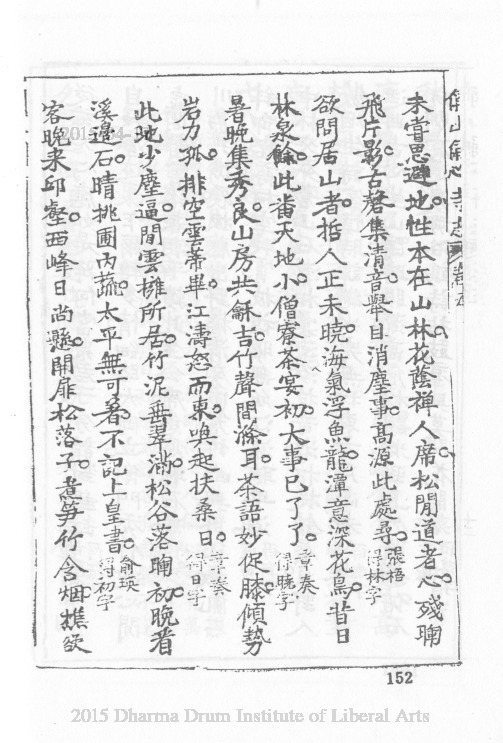 未嘗思避地性本在山林花蔭禅人席松閒道者心殘聊
飛片影古磬集清音舉目消塵事髙源此處尋張梧得林字
欲問居山者哲人正未曉海氣浮魚龍潭意深花鳥昔日
林泉餘此畨天地小僧寮茶宴初大事已了了章奏得曉字
暑晩集秀良山房共龢吉竹聲間滌耳茶語妙促膝傾勢
岩力孤排空雲蒂畢江濤怒而東嗅起扶桑日章蔡得日字
此地少塵逼閒雲擁所居竹泥垂翠潲松谷落聊初晩看
溪邉石晴挑圃内蔬太平無可着不記上皇書俞瑛得初字
客晩来邱壑西峰日尚懸開扉松落子煮笋竹含烟樵欲
152
2015 Dharma Drum Institute of Liberal Arts